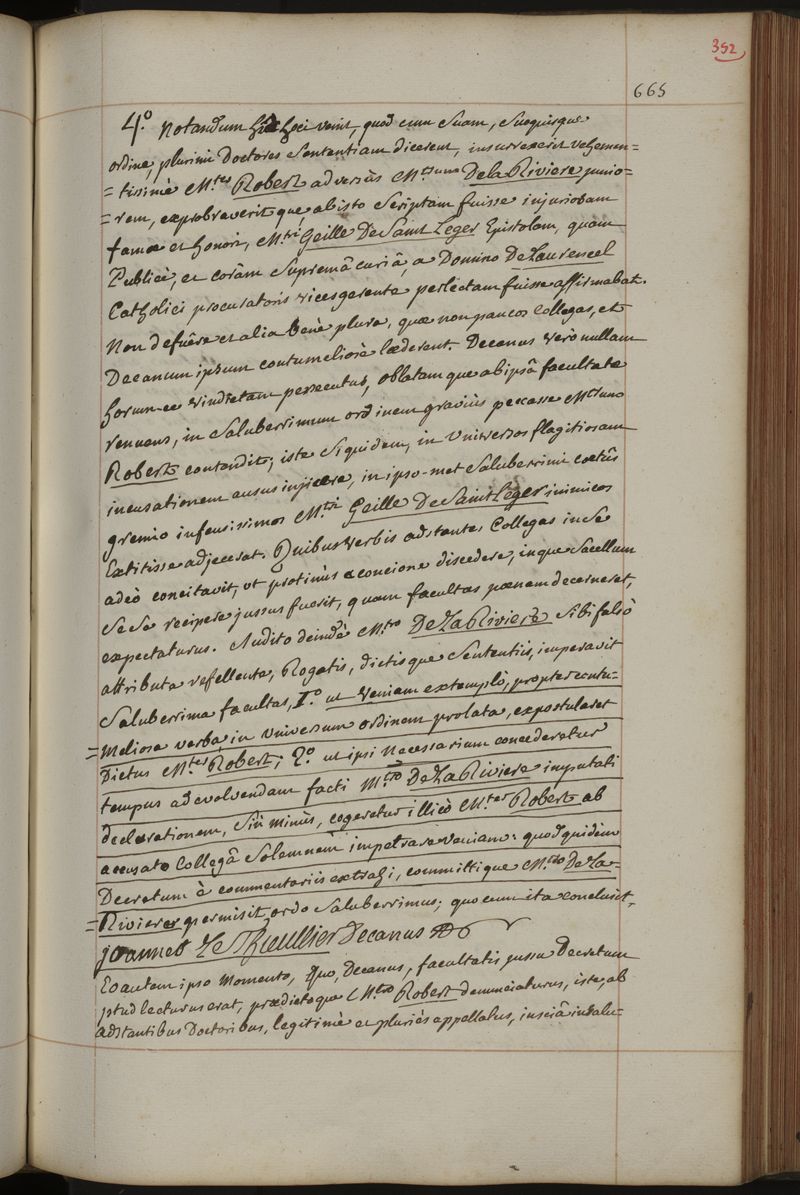 352
665
4.° Notandum hîc loci venit, quod cum suam, suoquisque
ordine, plurimi Doctores Sententiam dicerent, insurrexerit vehemen=
=tissimè M.ter Robert adversùs M.trum De la Riviere junio=
=rem, exprobraveritque, ab isto Scriptam fuisse injuriosam
famæ et honori, M.tri Geille De Saint Leger Epistolam, quam
Publicè, et coràm Supremâ curiâ, a Domino De Laurencel
Catholici procuratoris vices gerente perlectam fuisse affirmabat.
Non defuêre et alia benè plura, quæ non paucos Collegas, et
Decanum ipsum contumeliosè læderent. Decanus verò nullam
horum-ce vindictam persecutus, oblatamque ab ipsâ facultate
renuens, in Saluberrimum ordinem graviùs peccasse M.trum
Robert contendit; iste siquidem, in Universos flagitiosam
incusationem ausus injicere, in ipso-met Saluberrimi cœtûs
gremio infensissimos M.tri Geille De Saint Leger inimicos
Extitisse adjecerat. Quibus verbis adstantes Collegas in se
adeò concitavit, ut protinùs a concione discedere, inque Sacellum
Se Se recipere jussus fuerit, quam facultas pœnam decerneret,
expectaturus. Audito deindè M.tro De La Riviere sibi falsò
attributa refellente, Rogatis, dictisque Sententiis, imperavit
Saluberrima facultas, 1.° ut veniam extemplò, propter contu=
=meliosa verba, in Universum ordinem prolata, expostularet
Dictus M.ter Robert; 2.° ut ipsi necessarium concederetur
tempus ad evolvendam facti M.tro De La Riviere imputati
declarationem, sin minùs, cogeretur illicò M.ter Robert ab
accusato Collegâ Solemnem impetrare veniam: quod quidem
Decretum è commentariis extrahi, committique M.tro De La=
=Riviere permisit ordo Saluberrimus; quocum ita conclusit
Joannes Le Thieullier Decanus
Eo autem ipso momento, quo, Decanus, facultatis jussu Decretum
istud lecturus erat, prædictoque M.tro Robert denunciaturus, iste, ab
adstantibus Doctoribus, legitimè et pluriès appellatus, insciâ insalu=